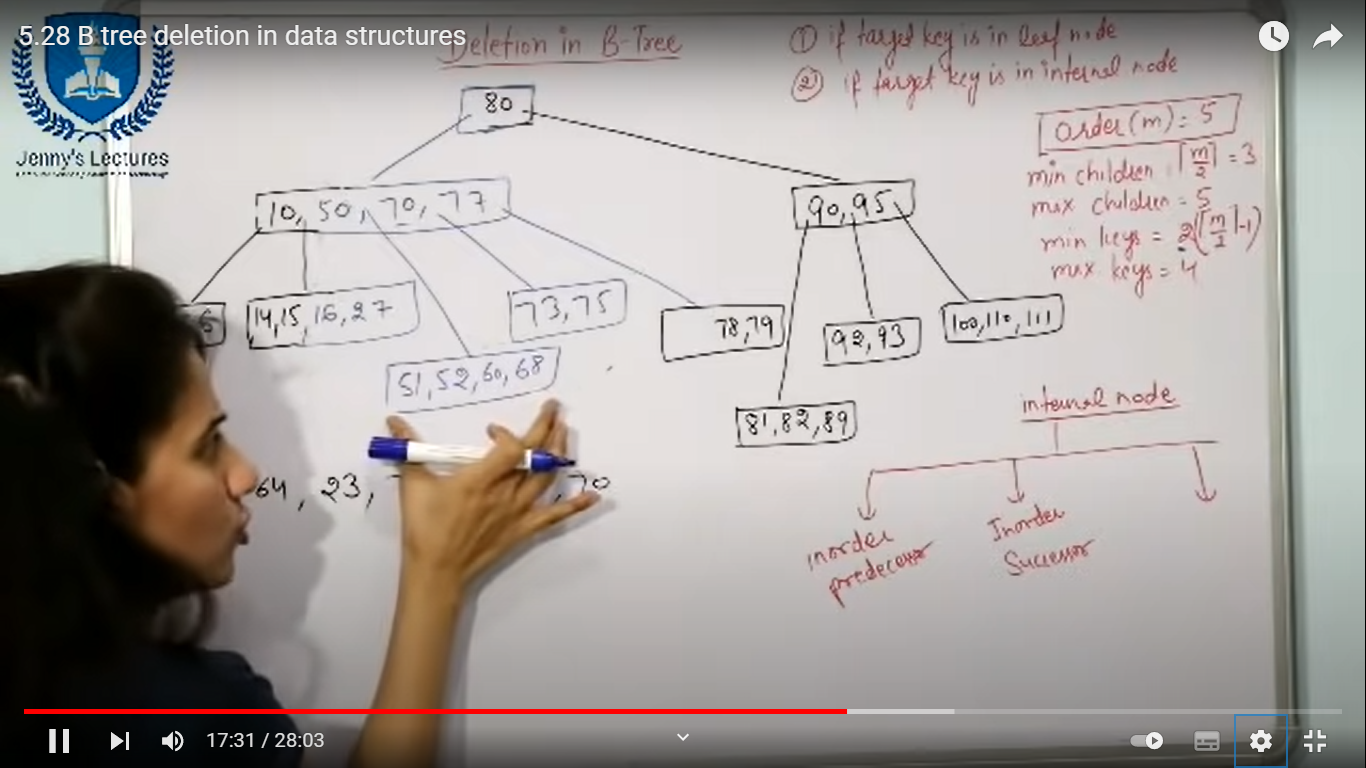 5.28 B tree deletion in data structures
Deletion in B-Tree
① if target key is in leaf node
② if target key is in internal node
Jenny's Lectures
Order(m) = 5
min children : ⌈m/2⌉ = 3
max children = 5
min keys = 2(⌈m/2⌉-1)
max keys = 4
80
10, 50, 70, 77
90, 95
6
14, 15, 16, 27
73, 75
78, 79
92, 93
100, 110, 111
51, 52, 60, 68
81, 82, 89
internal node
64, 23,
, 70
inorder predecessor
Inorder Successor
17:31 / 28:03